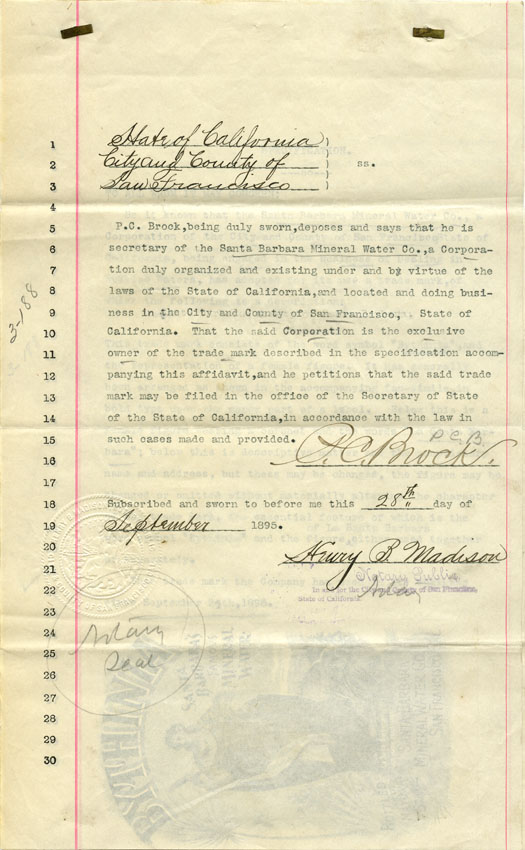 1 State of California )
2 City and County of ) ss.
3 San Francisco )
4
5 P.C. Brock,being duly sworn,deposes and says that he is
6 secretary of the Santa Barbara Mineral Water Co.,a Corpora-
7 tion duly organized and existing under and by virtue of the
8 laws of the State of California,and located and doing busi-
9 ness in the City and County of San Francisco, State of
10 California. That the said Corporation is the exclusive
11 owner of the trade mark described in the specification accom-
12 panying this affidavit,and he petitions that the said trade
13 mark may be filed in the office of the Secretary of State
14 of the State of California,in accordance with the law in
15 such cases made and provided. P.C.B.
16 P.C. Brock.
17
18 Subscribed and sworn to before me this 28th day of
19 September 1895.
20 Henry B Madison
21 Notary Public
22 In and for the City and County of San Francisco,
State of California.
Notary
23
24 Notary
25 Seal
26
27
28
29
30
3-188